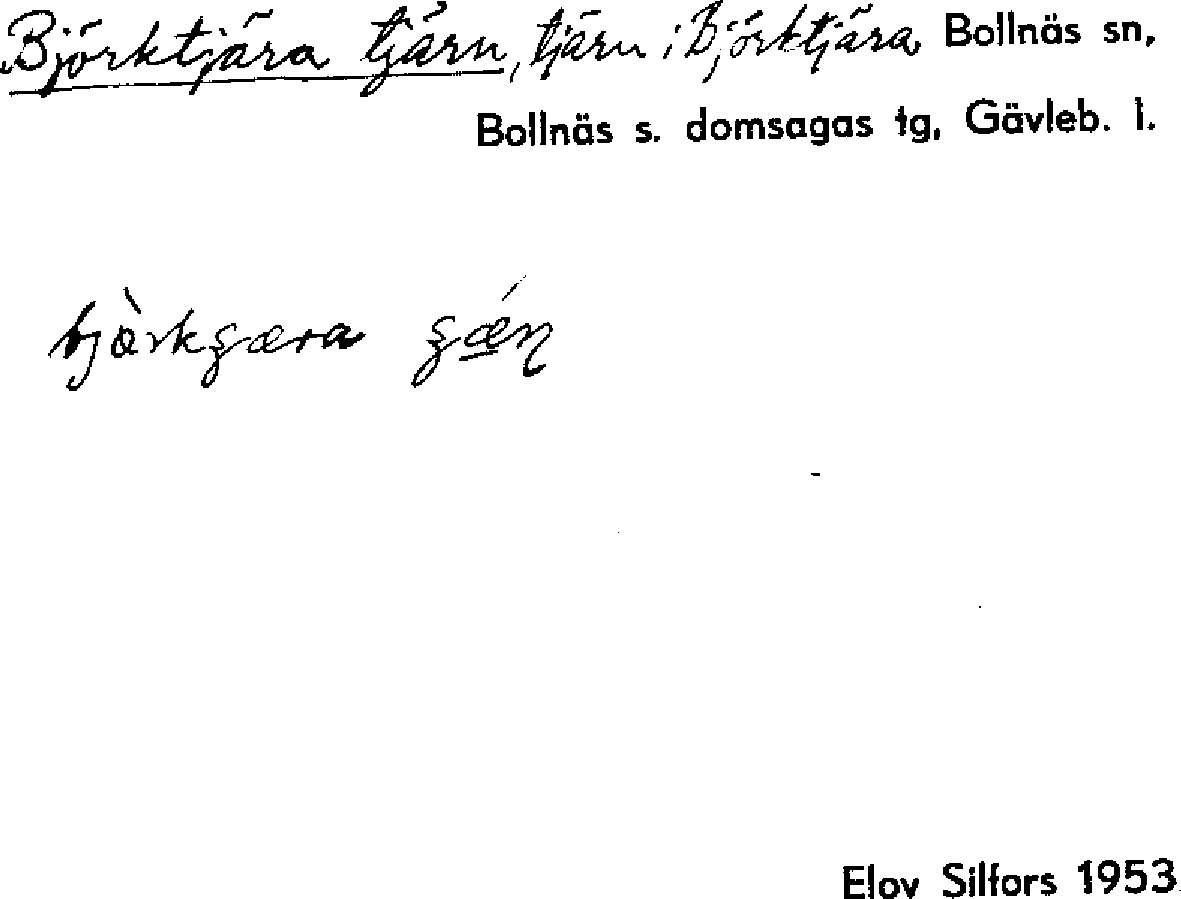 Björktjära tjärn, tjärn i Björktjära Bollnäs sn,
Bollnäs s. domsagas tg, Gävleb. l.
Elov Silfors 1953